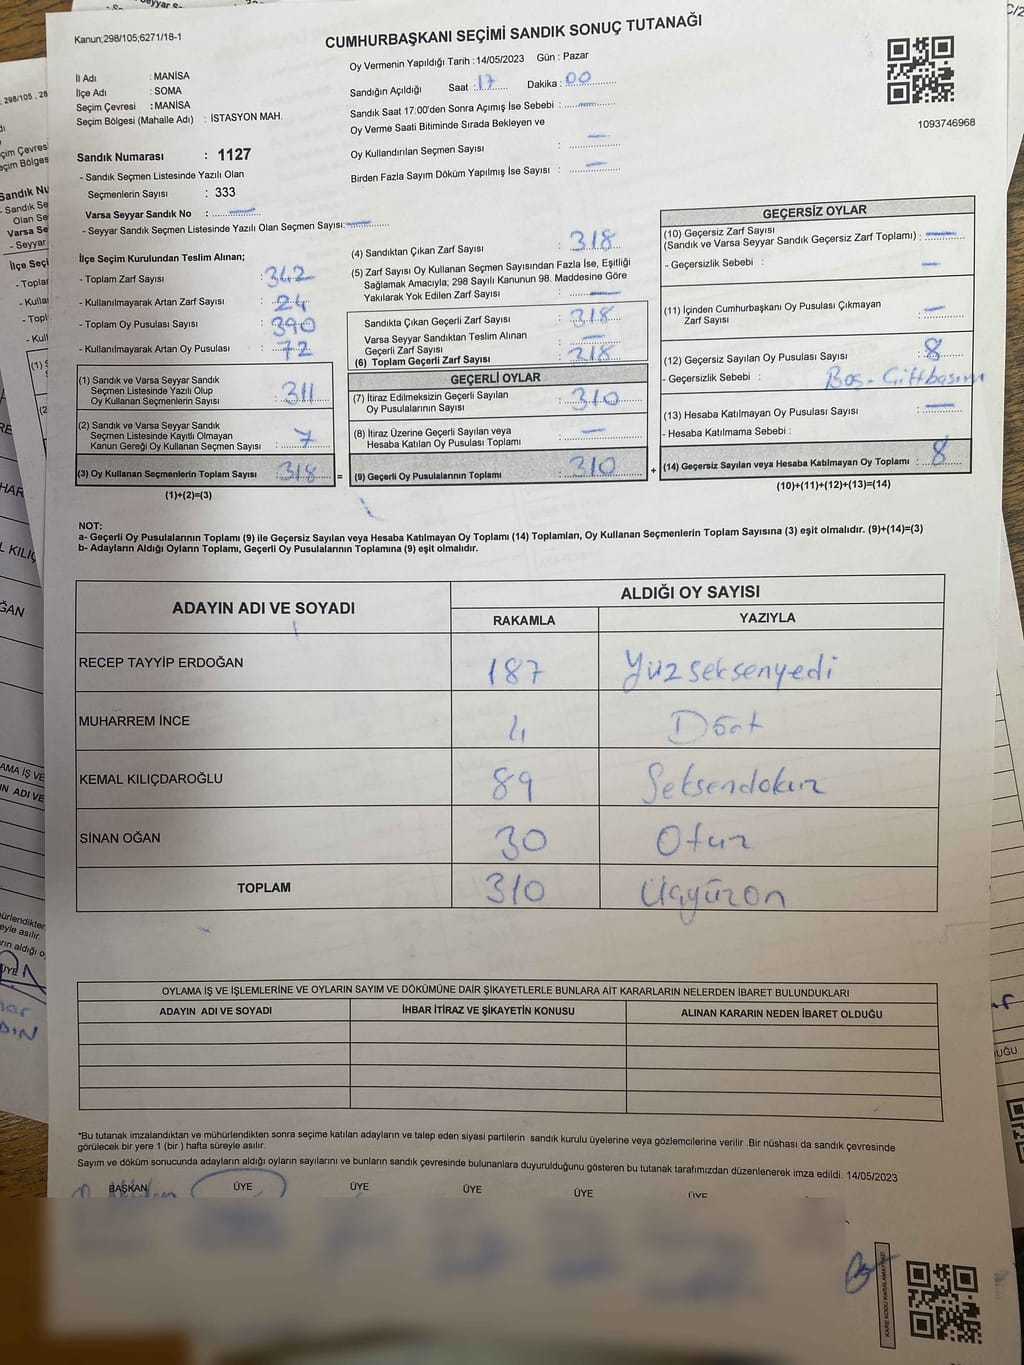 Kanun;298/105;6271/18-1
CUMHURBAŞKANI SEÇİMİ SANDIK SONUÇ TUTANAĞI
İl Adı : MANİSA
İlçe Adı : SOMA
Seçim Çevresi : MANİSA
Seçim Bölgesi (Mahalle Adı) : İSTASYON MAH.
Sandık Numarası : 1127
- Sandık Seçmen Listesinde Yazılı Olan
Seçmenlerin Sayısı : 333
Varsa Seyyar Sandık No : —
- Seyyar Sandık Seçmen Listesinde Yazılı Olan Seçmen Sayısı: —
Oy Vermenin Yapıldığı Tarih : 14/05/2023 Gün : Pazar
Sandığın Açıldığı Saat : 17 Dakika : 00
Sandık Saat 17:00'den Sonra Açımış İse Sebebi : —
Oy Verme Saati Bitiminde Sırada Bekleyen ve
Oy Kullandırılan Seçmen Sayısı : —
Birden Fazla Sayım Döküm Yapılmış İse Sayısı : —
1093746968
İlçe Seçim Kurulundan Teslim Alınan;
- Toplam Zarf Sayısı : 342
- Kullanılmayarak Artan Zarf Sayısı : 24
- Toplam Oy Pusulası Sayısı : 390
- Kullanılmayarak Artan Oy Pusulası : 72
(1) Sandık ve Varsa Seyyar Sandık
Seçmen Listesinde Yazılı Olup
Oy Kullanan Seçmenlerin Sayısı : 311
(2) Sandık ve Varsa Seyyar Sandık
Seçmen Listesinde Kayıtlı Olmayan
Kanun Gereği Oy Kullanan Seçmen Sayısı : 7
(3) Oy Kullanan Seçmenlerin Toplam Sayısı : 318 =
(1)+(2)=(3)
(4) Sandıktan Çıkan Zarf Sayısı : 318
(5) Zarf Sayısı Oy Kullanan Seçmen Sayısından Fazla İse, Eşitliği
Sağlamak Amacıyla; 298 Sayılı Kanunun 98. Maddesine Göre
Yakılarak Yok Edilen Zarf Sayısı : —
Sandıkta Çıkan Geçerli Zarf Sayısı : 318
Varsa Seyyar Sandıktan Teslim Alınan
Geçerli Zarf Sayısı : —
(6) Toplam Geçerli Zarf Sayısı : 318
GEÇERLİ OYLAR
(7) İtiraz Edilmeksizin Geçerli Sayılan
Oy Pusulalarının Sayısı : 310
(8) İtiraz Üzerine Geçerli Sayılan veya
Hesaba Katılan Oy Pusulası Toplamı : —
(9) Geçerli Oy Pusulalarının Toplamı : 310 +
GEÇERSİZ OYLAR
(10) Geçersiz Zarf Sayısı
(Sandık ve Varsa Seyyar Sandık Geçersiz Zarf Toplamı) : —
- Geçersizlik Sebebi : —
(11) İçinden Cumhurbaşkanı Oy Pusulası Çıkmayan
Zarf Sayısı : —
(12) Geçersiz Sayılan Oy Pusulası Sayısı : 8
- Geçersizlik Sebebi : Boş - Çiftbasım
(13) Hesaba Katılmayan Oy Pusulası Sayısı : —
- Hesaba Katılmama Sebebi :
(14) Geçersiz Sayılan veya Hesaba Katılmayan Oy Toplamı : 8
(10)+(11)+(12)+(13)=(14)
NOT:
a- Geçerli Oy Pusulalarının Toplamı (9) ile Geçersiz Sayılan veya Hesaba Katılmayan Oy Toplamı (14) Toplamları, Oy Kullanan Seçmenlerin Toplam Sayısına (3) eşit olmalıdır. (9)+(14)=(3)
b- Adayların Aldığı Oyların Toplamı, Geçerli Oy Pusulalarının Toplamına (9) eşit olmalıdır.
ADAYIN ADI VE SOYADI ALDIĞI OY SAYISI
RAKAMLA YAZIYLA
RECEP TAYYİP ERDOĞAN 187 Yüzseksenyedi
MUHARREM İNCE 4 Dört
KEMAL KILIÇDAROĞLU 89 Seksendokuz
SİNAN OĞAN 30 Otuz
TOPLAM 310 Üçyüzon
OYLAMA İŞ VE İŞLEMLERİNE VE OYLARIN SAYIM VE DÖKÜMÜNE DAİR ŞİKAYETLERLE BUNLARA AİT KARARLARIN NELERDEN İBARET BULUNDUKLARI
ADAYIN ADI VE SOYADI İHBAR İTİRAZ VE ŞİKAYETİN KONUSU ALINAN KARARIN NEDEN İBARET OLDUĞU
*Bu tutanak imzalandıktan ve mühürlendikten sonra seçime katılan adayların ve talep eden siyasi partilerin sandık kurulu üyelerine veya gözlemcilerine verilir .Bir nüshası da sandık çevresinde
görülecek bir yere 1 (bir ) hafta süreyle asılır.
Sayım ve döküm sonucunda adayların aldığı oyların sayılarını ve bunların sandık çevresinde bulunanlara duyurulduğunu gösteren bu tutanak tarafımızdan düzenlenerek imza edildi. 14/05/2023
BAŞKAN ÜYE ÜYE ÜYE ÜYE ÜYE
KARE KODU KARALAMAYINIZ!